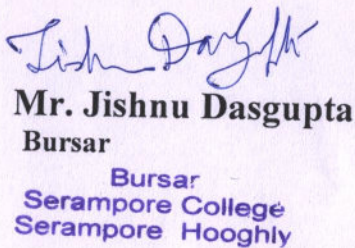 Jishnu Dasgupta
Mr. Jishnu Dasgupta
Bursar
Bursar
Serampore College
Serampore Hooghly